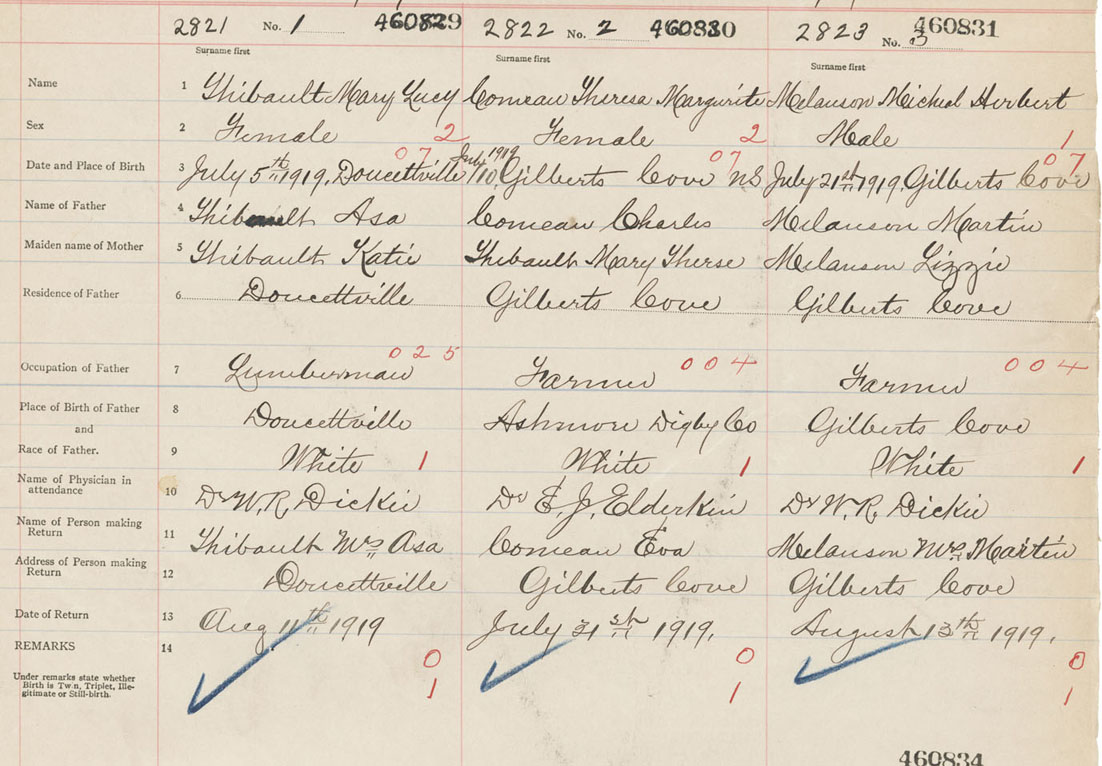 2821 No. 1 460829 2822 No. 2 460830 2823 No. 3 460831
Surname first Surname first Surname first
Name 1 Thibault Mary Lucy Comeau Theresa Margurite Melanson Micheal Herbert
Sex 2 Female 2 Female 2 Male 1
07 07 07
Date and Place of Birth 3 July 5th 1919, Doucettville July/10, 1919 Gilberts Cove NS July 21st 1919, Gilberts Cove
Name of Father 4 Thibault Asa Comeau Charles Melanson Martin
Maiden name of Mother 5 Thibault Katie Thibault Mary Therse Melanson Lizzie
Residence of Father 6 Doucettville Gilberts Cove Gilberts Cove
025 004 004
Occupation of Father 7 Lumberman Farmer Farmer
Place of Birth of Father 8 Doucettville Ashmore Digby Co Gilberts Cove
and
Race of Father. 9 White 1 White 1 White 1
Name of Physician in
attendance 10 Dr W. R. Dickie Dr E. J. Elderkin Dr W. R. Dickie
Name of Person making
Return 11 Thibault Mrs Asa Comeau Eva Melanson Mrs Martin
Address of Person making
Return 12 Doucettville Gilberts Cove Gilberts Cove
Date of Return 13 Aug 11th 1919 July 31st 1919. August 13th 1919.
REMARKS 14
0 0 0
Under remarks state whether
Birth is Twin, Triplet, Ille-
gitimate or Still-birth. 1 1 1
460834